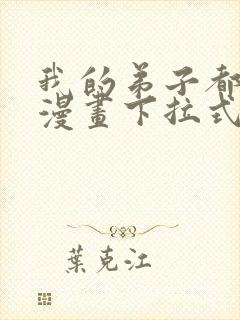 我的弟子都
漫畫下拉式
葉克江